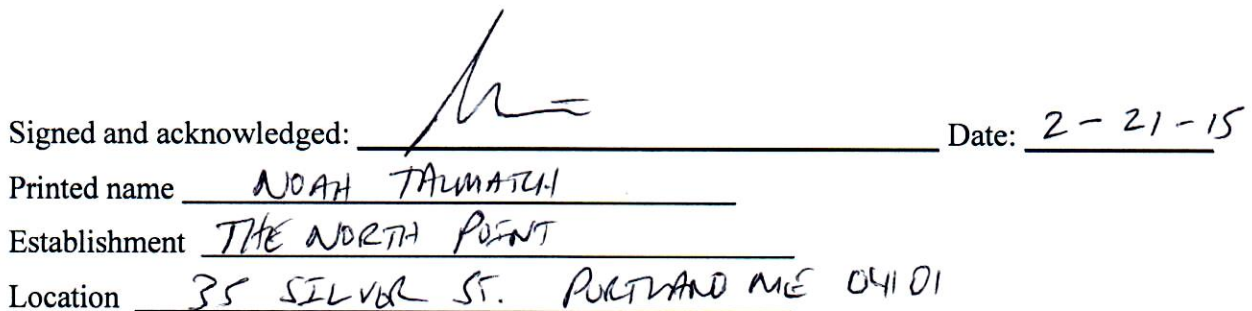 Signed and acknowledged: Date: 2-21-15
Printed name NOAH
Establishment THE NORTH POINT
Location 35 SILVER ST. PORTLAND ME 04101